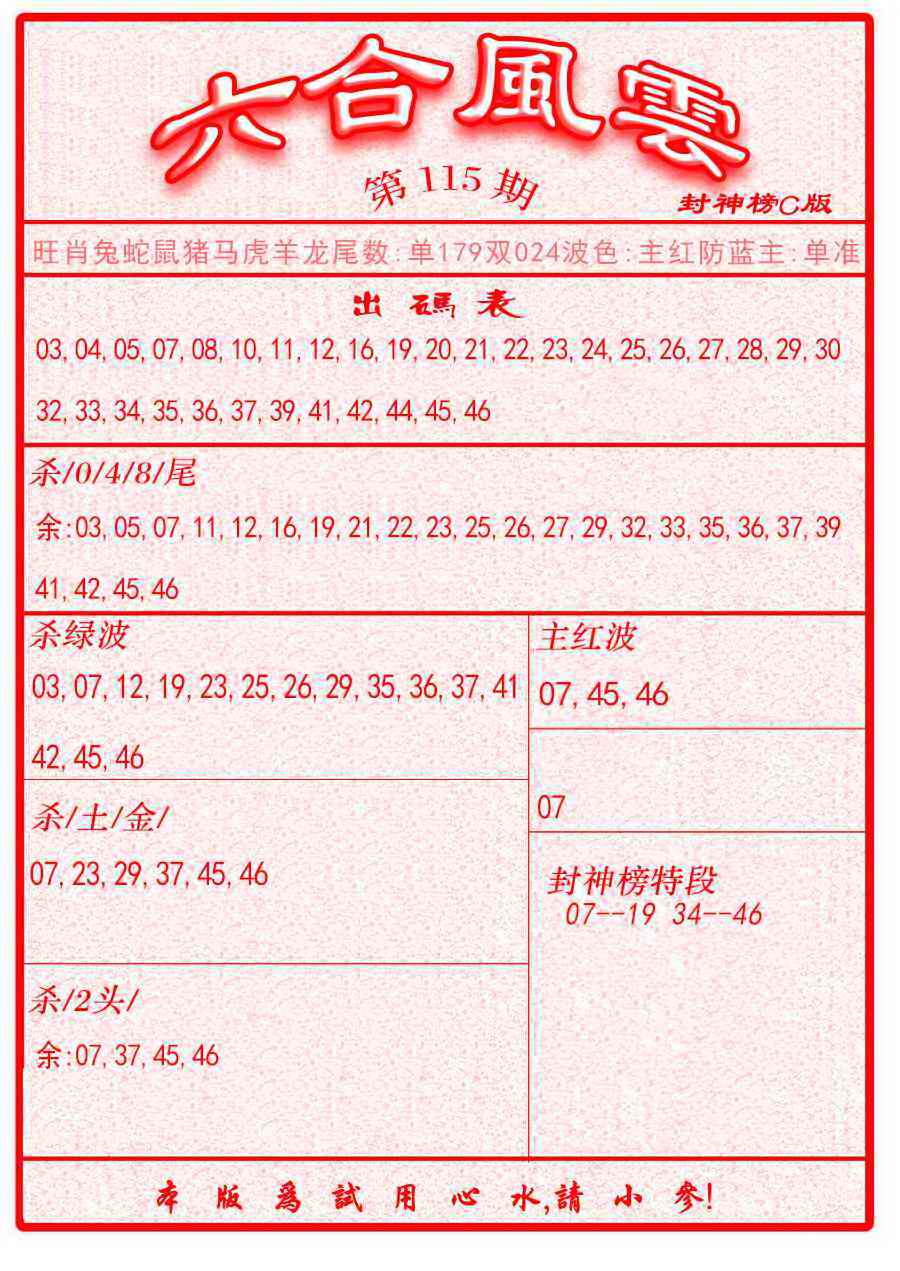 六合風雲
第115期
封神榜C版
旺肖兔蛇鼠猪马虎羊龙尾数:单179双024波色:主红防蓝主:单准
出碼表
03,04,05,07,08,10,11,12,16,19,20,21,22,23,24,25,26,27,28,29,30
32,33,34,35,36,37,39,41,42,44,45,46
杀/0/4/8/尾
余:03,05,07,11,12,16,19,21,22,23,25,26,27,29,32,33,35,36,37,39
41,42,45,46
杀绿波
03,07,12,19,23,25,26,29,35,36,37,41
42,45,46
主红波
07,45,46
07
杀/土/金/
07,23,29,37,45,46
封神榜特段
07--19 34--46
杀/2头/
余:07,37,45,46
本版爲試用心水,請小參!